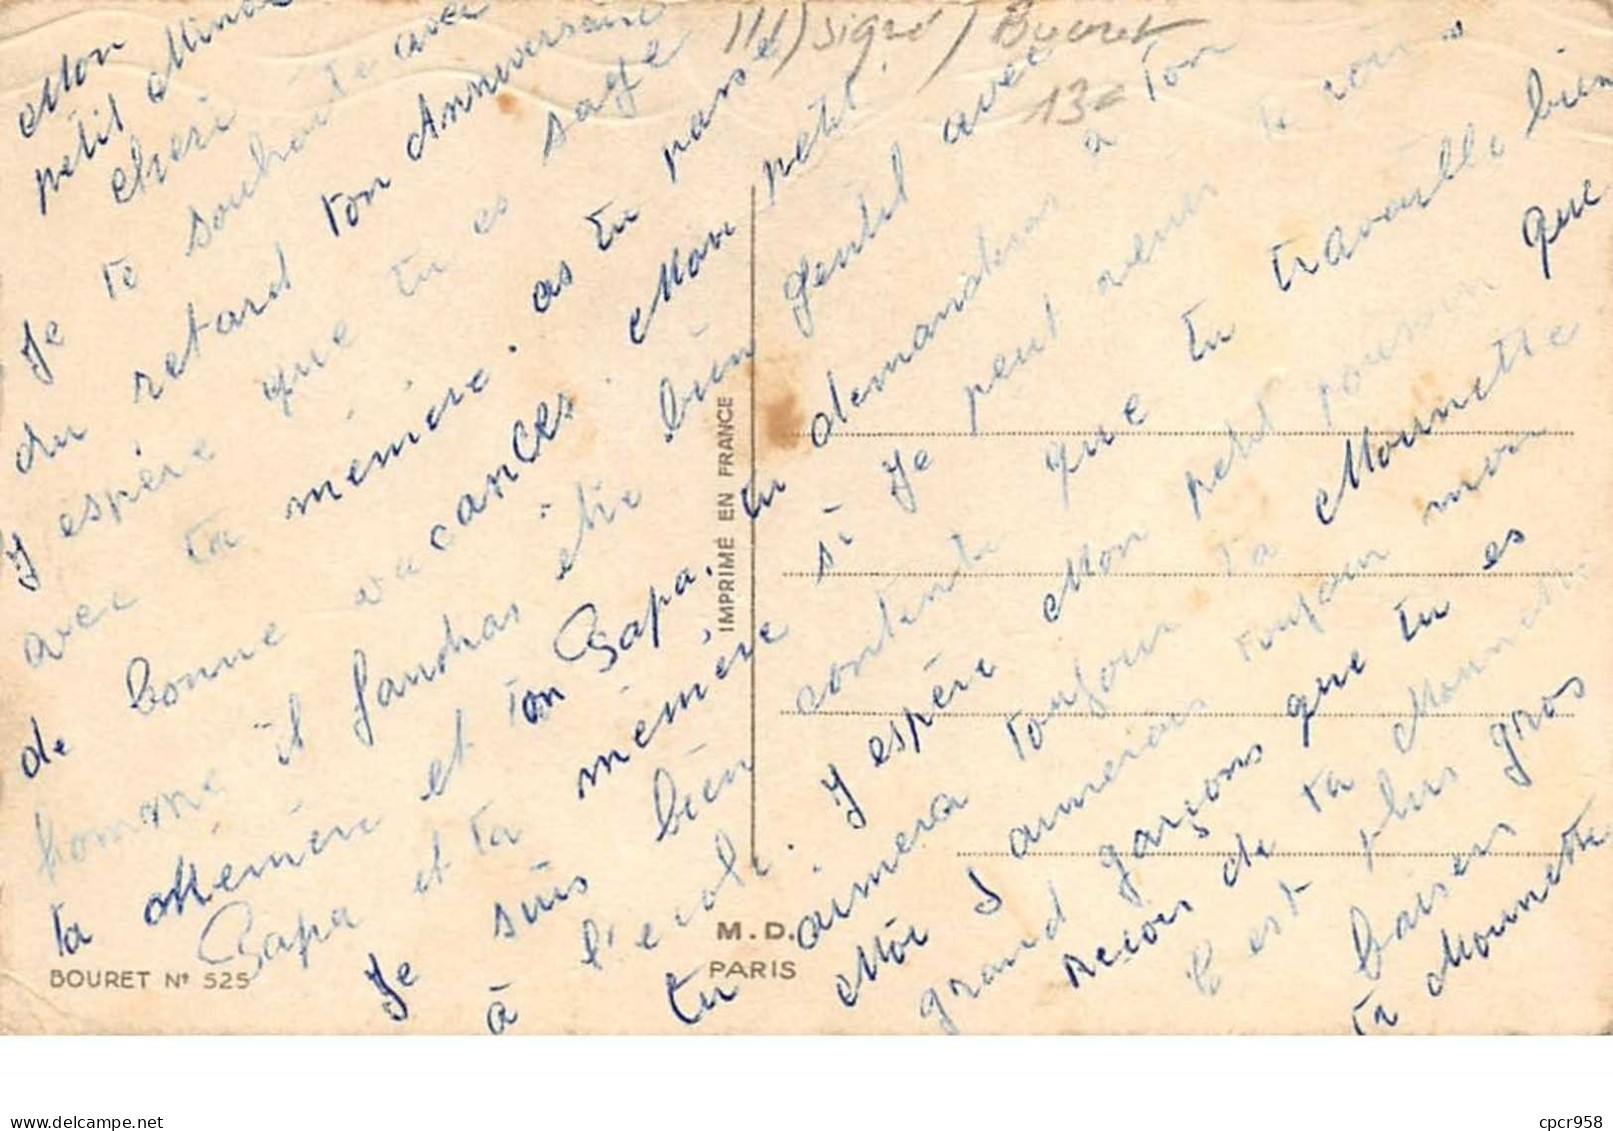 Ill) signé / Bouret
13€
Mon
petit Minou
cheri
Je te souhaite avec
du retard ton Anniversaire
J espère que tu es sage
avec ta mémère. as tu passé
de bonne vacances. Mon petit
homme il faudras être bien gentil avec
ta Mémère et ton Papa. tu demanderas a ton
Papa et ta mémère si Je peut venir te voir..
Je suis bien contente que tu travaille bien
à l'ecole. J espère Mon petit poussin que
tu aimera toujour ta Mounette
Moi J aimerais toujour mon
grand garçons que tu es
Recois de ta Mounette
c est plus gros
baiser
ta Mounette
IMPRIMÉ EN FRANCE
M.D.
PARIS
BOURET N° 525
delcampe.net
cpcr958